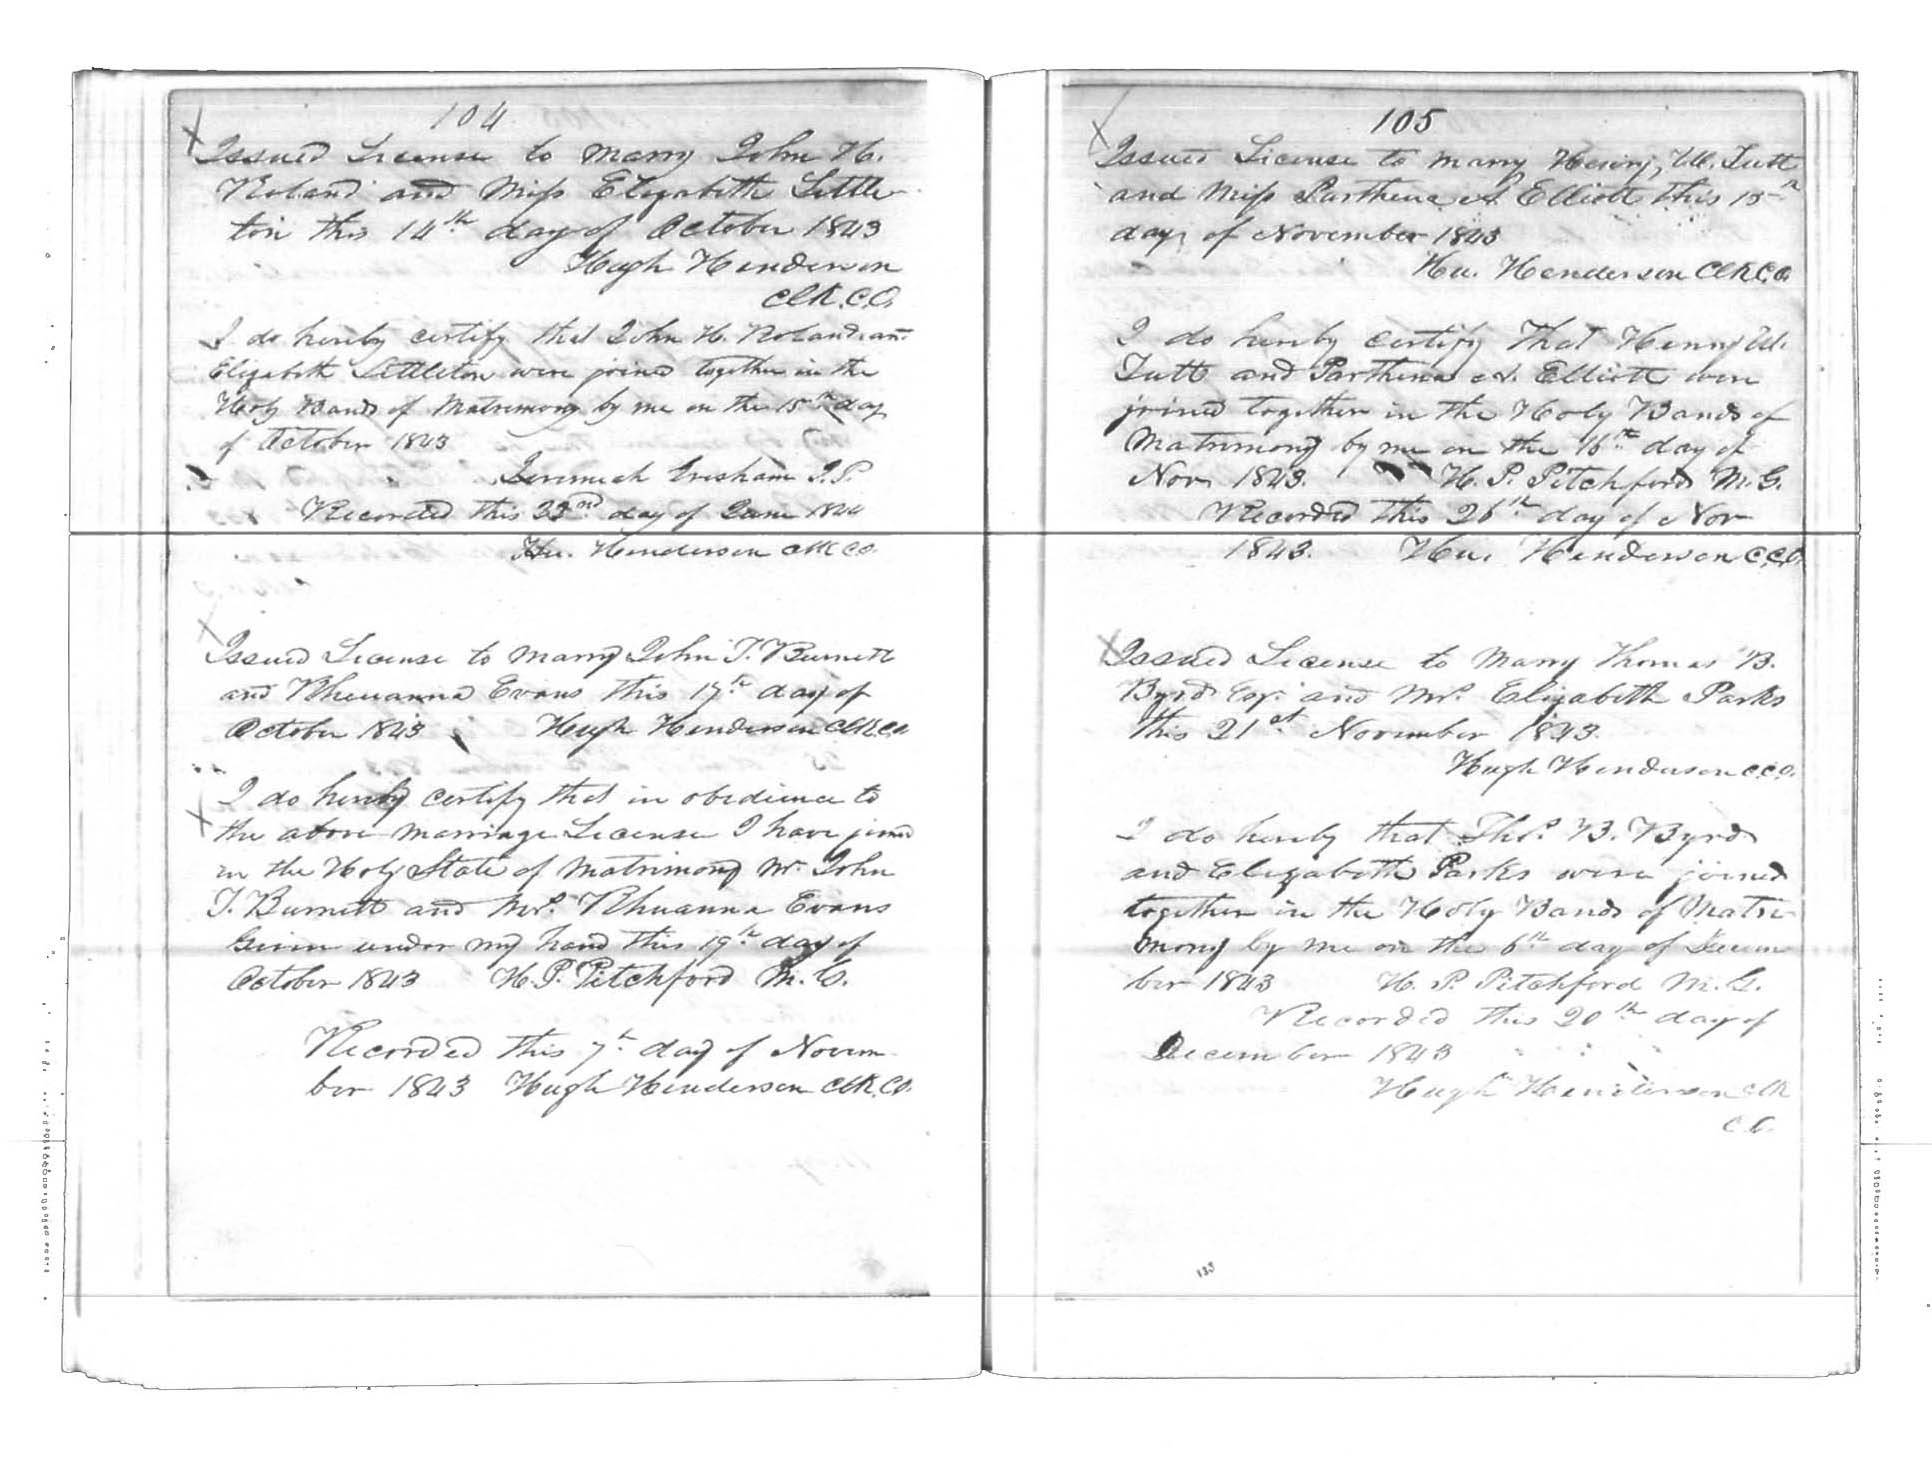 104
Issued License to marry John H.
Roland and Miss Elizabeth Little
ton this 14th day of October 1843
Hugh Henderson
Clk. C.O.
I do hereby certify that John H. Roland and
Elizabeth Littleton were joined together in the
Holy Bands of Matrimony by me on the 15th day
of October 1843
Jeremiah Gresham J.P.
Recorded this 23nd day of June 1844
Hu. Henderson Clk CO.
Issued License to marry John T. Burnett
and Rheuanna Evans this 17th day of
October 1843 Hugh Henderson Clk. CO
I do hereby certify that in obedience to
the above marriage License I have joined
in the Holy State of Matrimony Mr. John
T. Burnett and Mrs. Rhuanna Evans
Given under my hand this 19th day of
October 1843 H. P. Pitchford M. G.
Recorded this 7th day of Novem
ber 1843 Hugh Henderson Clk. CO.
105
Issued License to marry Henry W. Tutt
and Miss Parthena A. Elliott this 15th
day of November 1843
Hu. Henderson Clk C.O.
I do hereby certify That Henry W.
Tutt and Parthena A. Elliott were
joined together in the Holy Bands of
Matrimony by me on the 16th day of
Nov 1843. H. P. Pitchford M.G.
Recorded this 26th day of Nov
1843. Hu. Henderson C.C.O.
Issued License to Marry Thomas B.
Byrd Esqr. and Mrs. Elizabeth Parks
this 21st November 1843.
Hugh Henderson C.C.O.
I do hereby that Thos. B. Byrd
and Elizabeth Parks were joined
together in the Holy Bands of Matri
mony by me on the 6th day of Decem
ber 1843 H. P. Pitchford M. G.
Recorded this 20th day of
December 1843
Hugh Henderson Clk
C.O.
133